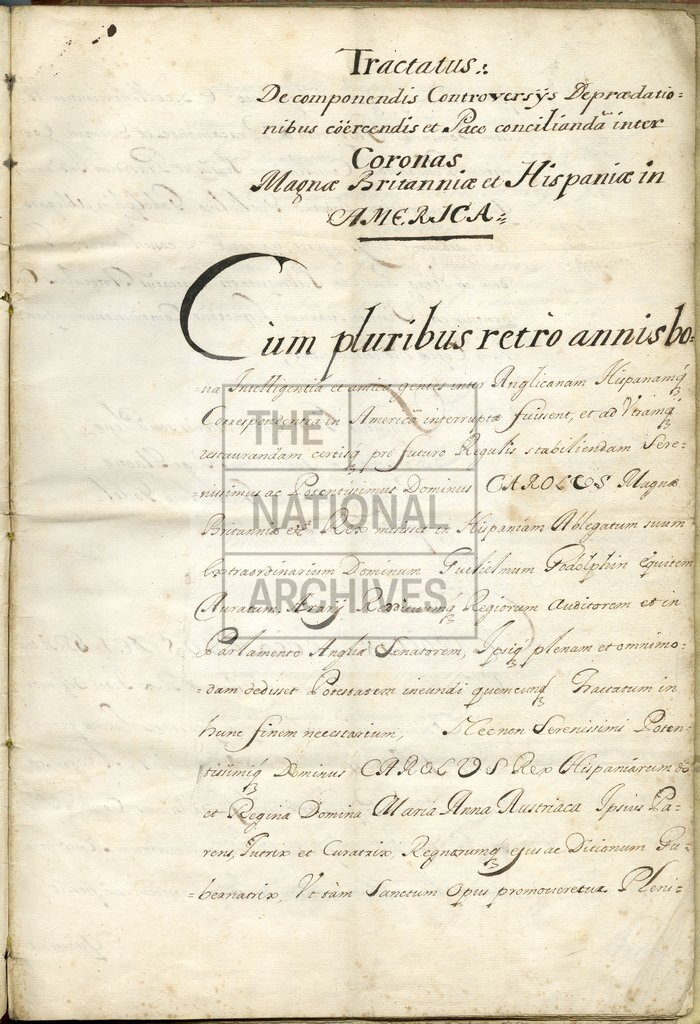 Tractatus:
De componendis Controversÿs Deprædatio-
nibus cöercendis et Pace conciliandâ inter
Coronas
Magnæ Britanniæ et Hispaniæ in
AMERICA:
Cum pluribus retrò annis bo=
=na Intelligentia et amica gentes inter Anglicanam Hispanamq3
Correspondentia in Americâ interruptæ fuissent, et ad Utramq3
restaurandam certisq3 pro futuro Regulis stabiliendam Sere-
nissimus ac Potentissimus Dominus CAROLUS Magnæ
Britanniæ Rex misisset in Hispaniam Ablegatum suum
Extraordinarium Dominum Gulielmum Godolphin Equitem
Auratum, Ærarÿ Redituumq3 Regiorum Auditorem et in
Parlamento Angliæ Senatorem, Ipsiq3 plenam et omnimo-
dam dedisset Potestatem ineundi quemcunq3 Tractatum in
hunc finem necessarium, Necnon Serenissimi Poten-
tissimiq3 Dominus CAROLUS Rex Hispaniarum &c
et Regina Domina Maria Anna Austriaca Ipsius Pa-
rens, Tutrix et Curatrix, Regnorumq3 ejus ac Ditionum Gu-
=bernatrix, Ut tàm Sanctum Opus promoveretur Pleni-
THE
NATIONAL
ARCHIVES